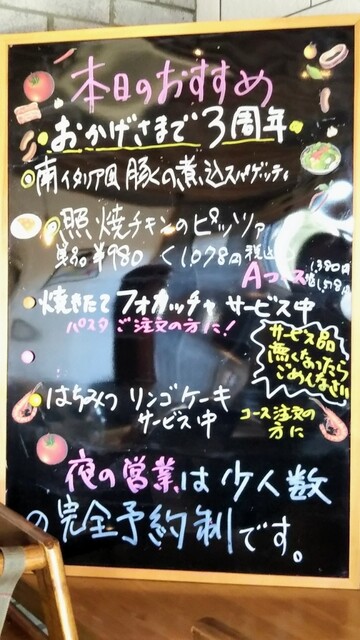 本日のおすすめ
おかげさまで3周年
南イタリア風 豚くの煮込スパゲッティ
照焼チキンのピッツァ
単品¥980 く1,078円税込
Aコース 1,380円
焼きたて フォカッチャ サービス中
パスタ ご注文の方に!
サービス品
無くなったら
ごめんなさい
はちみつ リンゴケーキ
サービス中
コース注文の
方に
夜の営業は少人数
の完全予約制です。